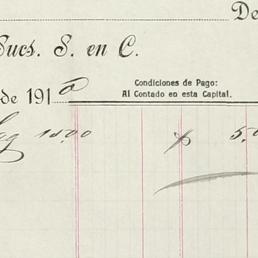 De
Sucs. S. en C.
de 191
Condiciones de Pago:
Al Contado en esta Capital.
$ 5.